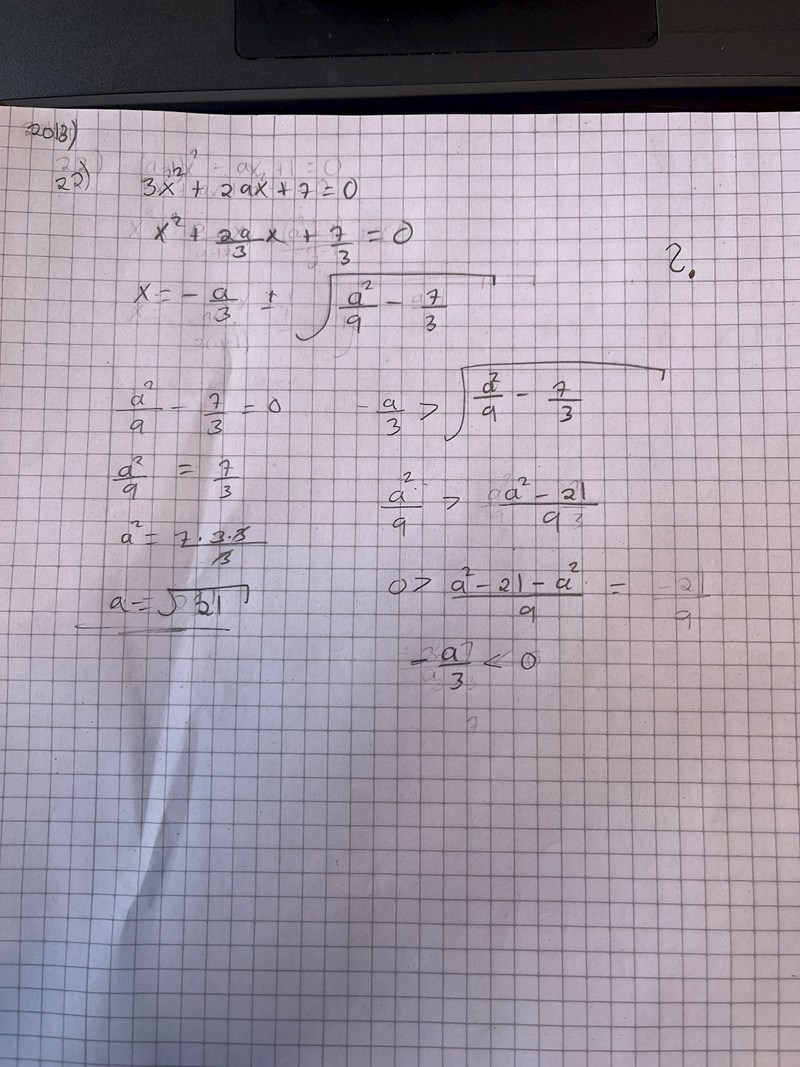 2013)
22) 3x² + 2ax + 7 = 0
x² + 2a/3 x + 7/3 = 0
?
x = - a/3 ± √(a²/9 - 7/3)
a²/9 - 7/3 = 0
a²/9 = 7/3
a² = 7·3·3/3
a = √21
- a/3 > √(a²/9 - 7/3)
a²/9 > a² - 21/9
0 > a² - 21 - a²/9 = -21/9
- a/3 < 0